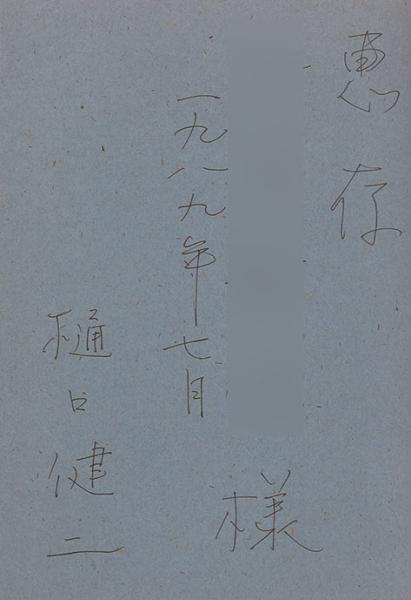 恵存
様
一九八九年七月
樋口健二